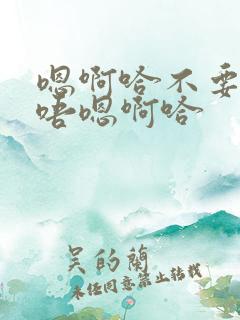 嗯啊哈不要
唔嗯啊哈
吴的蘭
未经同意禁止转载